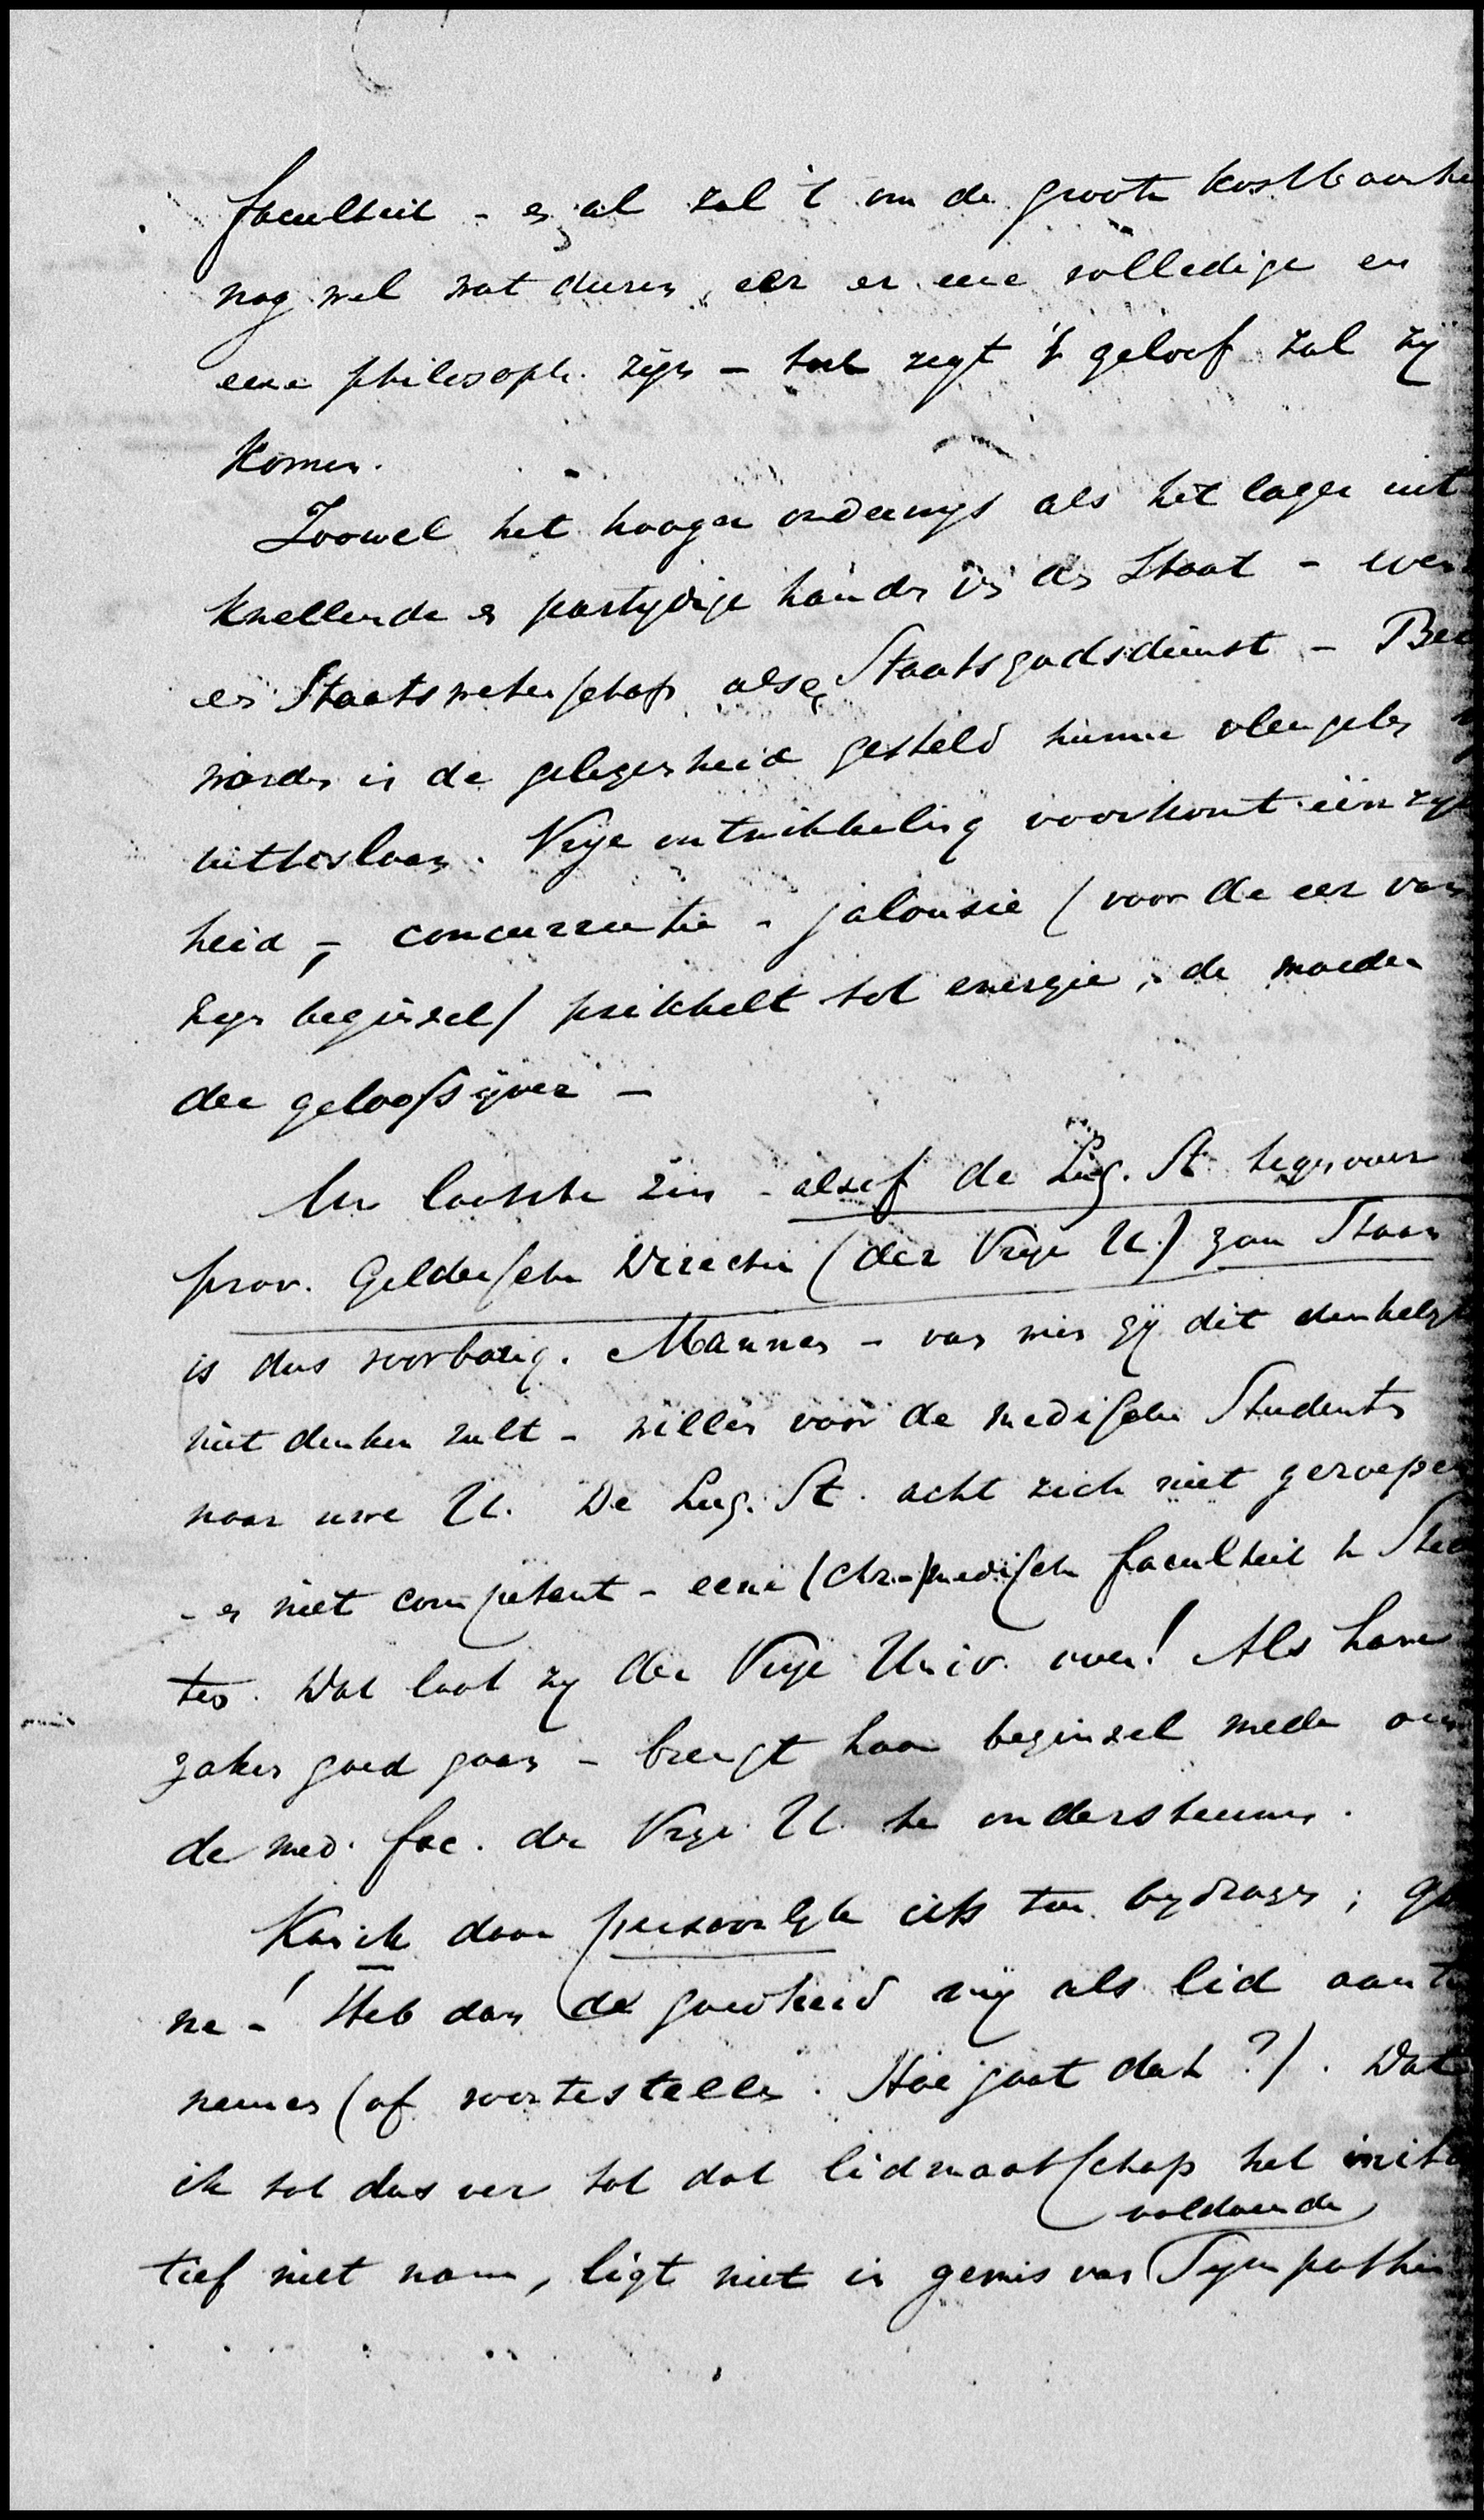 faculteit - en al zal 't om de groote kostbaarhe
nog wel wat duren, eer er eene volledige en
eene philosoph. zijn - toch zegt 't geloof zal zij
komen.
Zoowel het hooger onderwijs als het lager uit
knellende en partijdige handen v. den Staat -
en Staatswetenschap als Staatsgodsdienst -
worden in de gelegenheid gesteld hunne vleugelen
uitteslaan. Vrije ontwikkeling voorkomt éénzij
heid, - concurrentie - jalousie (voor de eer van
zijn beginsel) prikkelt tot energie, de moeder
der geloofsijver -
Uw laatste zin - alsof de Luc. St. tegenover
prov. Geldersche Directie (der Vrije U.) zou staan
is dus voorbarig. Mannen - van wien gij dit denkelijk
niet denken zult - willen voor de medische Studenten
naar uwe U. De Luc. St. acht zich niet geroepen
- en niet competent - eene (chr.-) medische faculteit te
ten. Dat laat zij der Vrije Univ. over! Als hare
zaken goed gaan - brengt haar beginsel mede om
de med. fac. der Vrije U. te ondersteunen.
Kan ik daar persoonlijk iets toe bijdragen;
ne - ! Heb dan de goedheid mij als lid aan te
nemen (of voortestellen. Hoe gaat dat?). Dat
ik tot dus ver tot dat lidmaatschap het initia
voldoende
tief niet nam, ligt niet in gemis van Sympathie